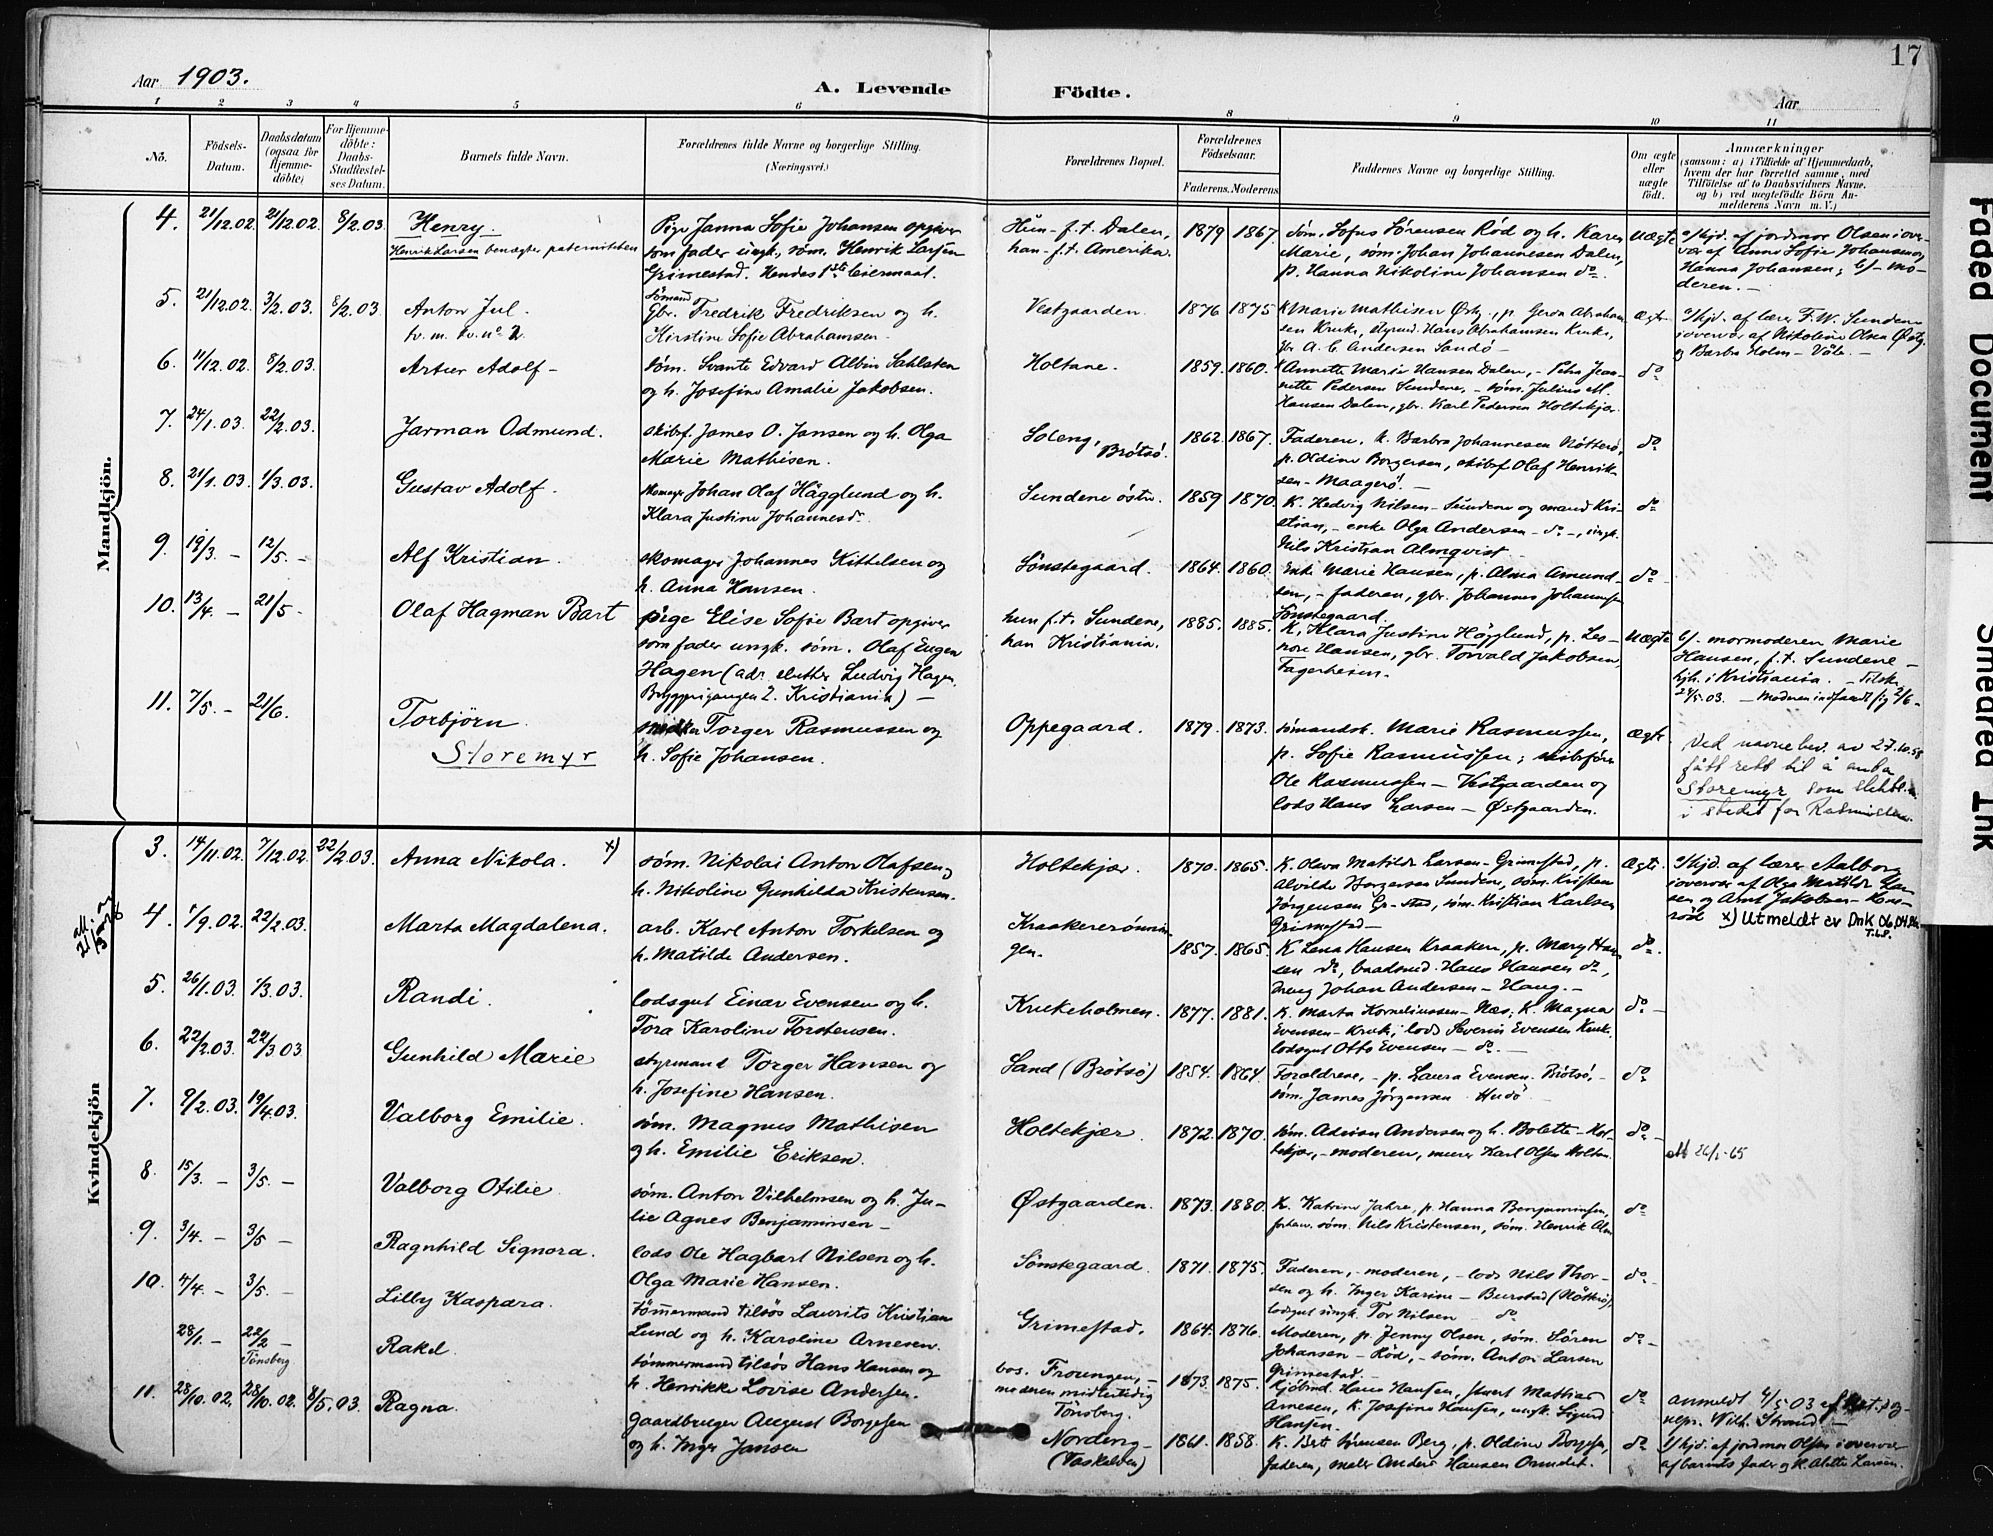 17
Aar 1903.
A. Levende Födte.
Aar
1 2 3 4 5 6 8 9 10 11
No.
Födsels-Datum.
Daabsdatum (ogsaa for Hjemme-döbte)
For Hjemme-döbte: Daabs-Stadfæstel-ses Datum.
Barnets fulde Navn.
Forældrenes fulde Navne og borgerlige Stilling.
(Næringsvei.)
Forældrenes Bopæl.
Forældrenes Födselsaar.
Faderens. Moderens.
Faddernes Navne og borgerlige Stilling.
Om ægte eller uægte födt.
Anmærkninger
(saasom: a) i Tilfælde af Hjemmedaab,
hvem der har forrettet samme, med
Tilföielse af to Daabsvidners Navne.
og b) ved uægtefödte Börn An-
melderens Navn m. V.)
Mandkjön.
4. 21/12.02. 21/12.02. 8/2.03. Henry.
Henrik Larsen benægter paterniteten
Pige Janna Sofie Johansen opgiver
som fader ungk., søm. Henrik Larsen
Grimestad. Hendes 1ste leiermaal.
Hun - f.t. Dalen,
han - f.t. Amerika.
1879 1867.
Søm. Sofus Sörensen Röd og h. Karen
Marie, søm. Johan Johannesen Dalen,
p. Hanna Nikoline Johansen do.
Uægte
a/ hjd. af jordmor Olsen i over-
vær af Anne Sofie Johansen og
Hanna Johansen; b/- mo-
deren. -
5. 21/12.02. 3/2.03. 8/2.03. Anton Jul.
tv. m. kv. no 2.
Sömand
Gbr. Fredrik Fredriksen og h.
Kirstine Sofie Abrahamsen.
Vestgaarden.
1876 1875
K. Marie Mathisen Østg., p. Gerda Abraham-
sen Kruke, styrmd. Hans Abrahamsen Kruke,
gbr. A. C. Andersen Sandö -
Ægte
a/ hjd. af lærer F. W. Sundene
i overvær af Nikoline Olsen Østg.
og Barbra Holm - Våle. -
6. 11/12.02. 8/2.03. Artur Adolf -
Søm. Svante Edvard Albin Sahlsten
og h. Josefine Amalie Jakobsen.
Holtane.
1859. 1860.
Annette Marie Hansen Dalen, - Petra Jean-
nette Pedersen Sundene, - søm. Julius M.
Hansen Dalen, gbr. Karl Pedersen Holtekjær.
do
7. 24/1.03. 22/2.03. Jarman Odmund.
Skibsf. James O. Jansen og h. Olga
Marie Mathisen.
Soleng, Brötsö.
1862. 1867.
Faderen, k. Barbra Johannesen Nötterö,
p. Oldine Borgersen, skibsf. Olaf Henrik-
sen - Maagerö. -
do
8. 21/1.03. 1/3.03. Gustav Adolf.
Skomager Johan Olaf Hägglund og h.
Klara Justine Johannesd.
Sundene östre.
1859 1870.
K. Hedvig Nilsen - Sundene og mand Kri-
stian, - enke Olga Andersen - do -, ungk.
Nils Kristian Almqvist
do
9. 19/3. - 12/5. - Alf Kristian.
Skomager Johannes Kittelsen og
h. Anna Hansen.
Sönstegaard.
1864. 1860.
Enke Marie Hansen, p. Alma Amund-
sen, - faderen, gbr. Johannes Johannesen
Sönstegaard.
do
10. 13/4. - 21/5. - Olaf Hagman Bart
pige Elise Sofie Bart opgiver
som fader ungk. søm. Olaf Eugen
Hagen (adr. slutter Ludvig Hagen,
Bryggerigangen 2. Kristiania) -
hun f.t. Sundene,
han Kristiania.
1885. 1885.
K. Klara Justine Hägglund, p. Les-
nore Hansen, gbr. Torvald Jakobsen,
Fagerheim.
Uægte
b/- mormoderen Marie
Hansen, f.t. Sundene -
hjh. i Kristiania. -
24/5.03. - Moderen indfandt sig 2/6-
11. 7/5. - 21/6. Torbjörn.
Storemyr
Torger Rasmussen og
h. Sofie Johansen.
Oppegaard.
1879. 1873.
sømandsk. Marie Rasmussen,
p. Sofie Rasmussen; skibsfører
Ole Rasmussen - Vestgaarden og
lods Hans Larsen - Østgaarden.
ægte
Ved navnebev. av 27.10.58
fått rett til å anta
Storemyr som slektsn.
i stedet for Rasmussen.
Kvindekjön
3. 14/11.02. 7/12.02. 22/2.03. Anna Nikola. x)
søm. Nikolai Anton Olafsen,
h. Nikoline Gunhilda Kristensen.
Holtekjær.
1870. 1865.
K. Olava Matilde Larsen - Grimestad, p.
Alvilde Borgersen Sunden, søm. Kristen
Jörgensen Gr-stad, søm. Kristian Karlsen
Grimestad -
Ægte.
a/ hjd. af lærer Aalborg
i overvær af Olga Matilde Lar-
sen og Arnt Jakobsen -
röd x) Utmeldt av Dnk 06.04.86
T.G.P.
4. 1/9.02. 22/2.03. Marta Magdalena.
arb. Karl Anton Torkelsen og
h. Matilde Andersen.
Kraakererönnin-
gen.
1857. 1865.
K. Lena Hansen Kraaken, p. Mary Han-
sen do, baadsmd. Hans Hansen do,
Johan Andersen - Haug. -
do.
5. 26/1.03. 1/3.03. Randi.
lodsgut Einar Evensen og h.
Tora Karoline Torstensen.
Krukeholmen.
1877. 1881.
K. Marta Korneliussen - Næs, K. Magna
Evensen - Kruk; lods Severin Evensen Kruk,
lodsgut Otto Evensen - do. -
do -
6. 22/2.03. 22/3 03. Gunhild Marie
styrmand Torger Hansen og
h. Josefine Hansen.
Sand (Brötsö)
1854. 1864.
Forældrene, - p. Laura Evensen. Brötsö, -
søm. James Jørgensen Hudö
do -
7. 9/2.03. 19/4.03. Valborg Emilie.
søm. Magnus Mathisen
og h. Emilie Eriksen.
Holtekjær.
1872. 1870.
søm. Adrian Andersen og h. Bolette - Hol-
tekjær, - moderen, murer Karl Olsen Holtan.
do -
26/1-65
8. 15/3. - 3/5. - Valborg Otilie
søm. Anton Vilhelmsen og h. Ju-
lie Agnes Benjaminsen -
Østgaarden.
1873. 1880.
K. Katrine Jahre, p. Hanna Benjaminsen,
søm. Nils Kristensen, søm. Henrik
do -
9. 3/4. - 3/5 - Ragnhild Signora.
lods Ole Hagbart Nilsen og h.
Olga Marie Hansen.
Sönstegaard.
1871. 1875.
Faderen, - moderen, - lods Nils Thor-
sen og h. Inger Karine - Buerstad (Nötterö),
lodsgut ungk. Tor Nilsen - do
do -
10. 4/4. - 3/5. - Lilly Kaspara.
Tömmermand tilsös Laurits Kristian
Lund og h. Karoline Arnesen.
Grimestad.
1864. 1876.
Moderen, p. Jenny Olsen, søm. Sören
Johansen - Röd, - søm. Anton Larsen
Grimestad. -
do -
28/1. - 22/2 - Tönsberg Rakel.
tömmermand tilsös Hans Hansen og
h. Henrikke Lovise Andersen.
bos. Froungen, -
moderen midlertidig
Tönsberg.
1873. 1875.
Kjöbmd. Hans Hansen, Mathias
Arnesen, K. Josefine Hansen, ungk. Sigurd
Hansen.
do
anmeldt 4/5 03 af
Wilh. Strand -
11. 28/10.02. 28/10.02. 8/5.03. Ragna.
Gaardbruger August Borgesen
og h. Inger Jansen
Nordeng -
1861. 1858.
K. Berte Sörensen Berg, p. Oldine Borgesen,
faderen, maler Andre Hansen Ormelet.
do
a/ hjd. af jordmor Olsen i overvær
af barnets fader og K. Alette Larsen.
Faded Document
Smeared Ink